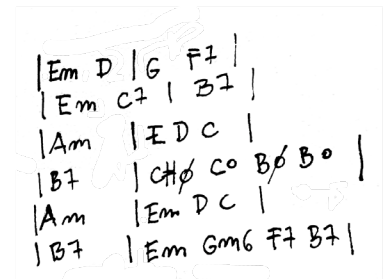 | Em D | G F7 |
| Em C7 | B7 |
| Am | E D C |
| B7 | C#ø Co Bø Bo |
| Am | Em D C |
| B7 | Em Gm6 F7 B7 |